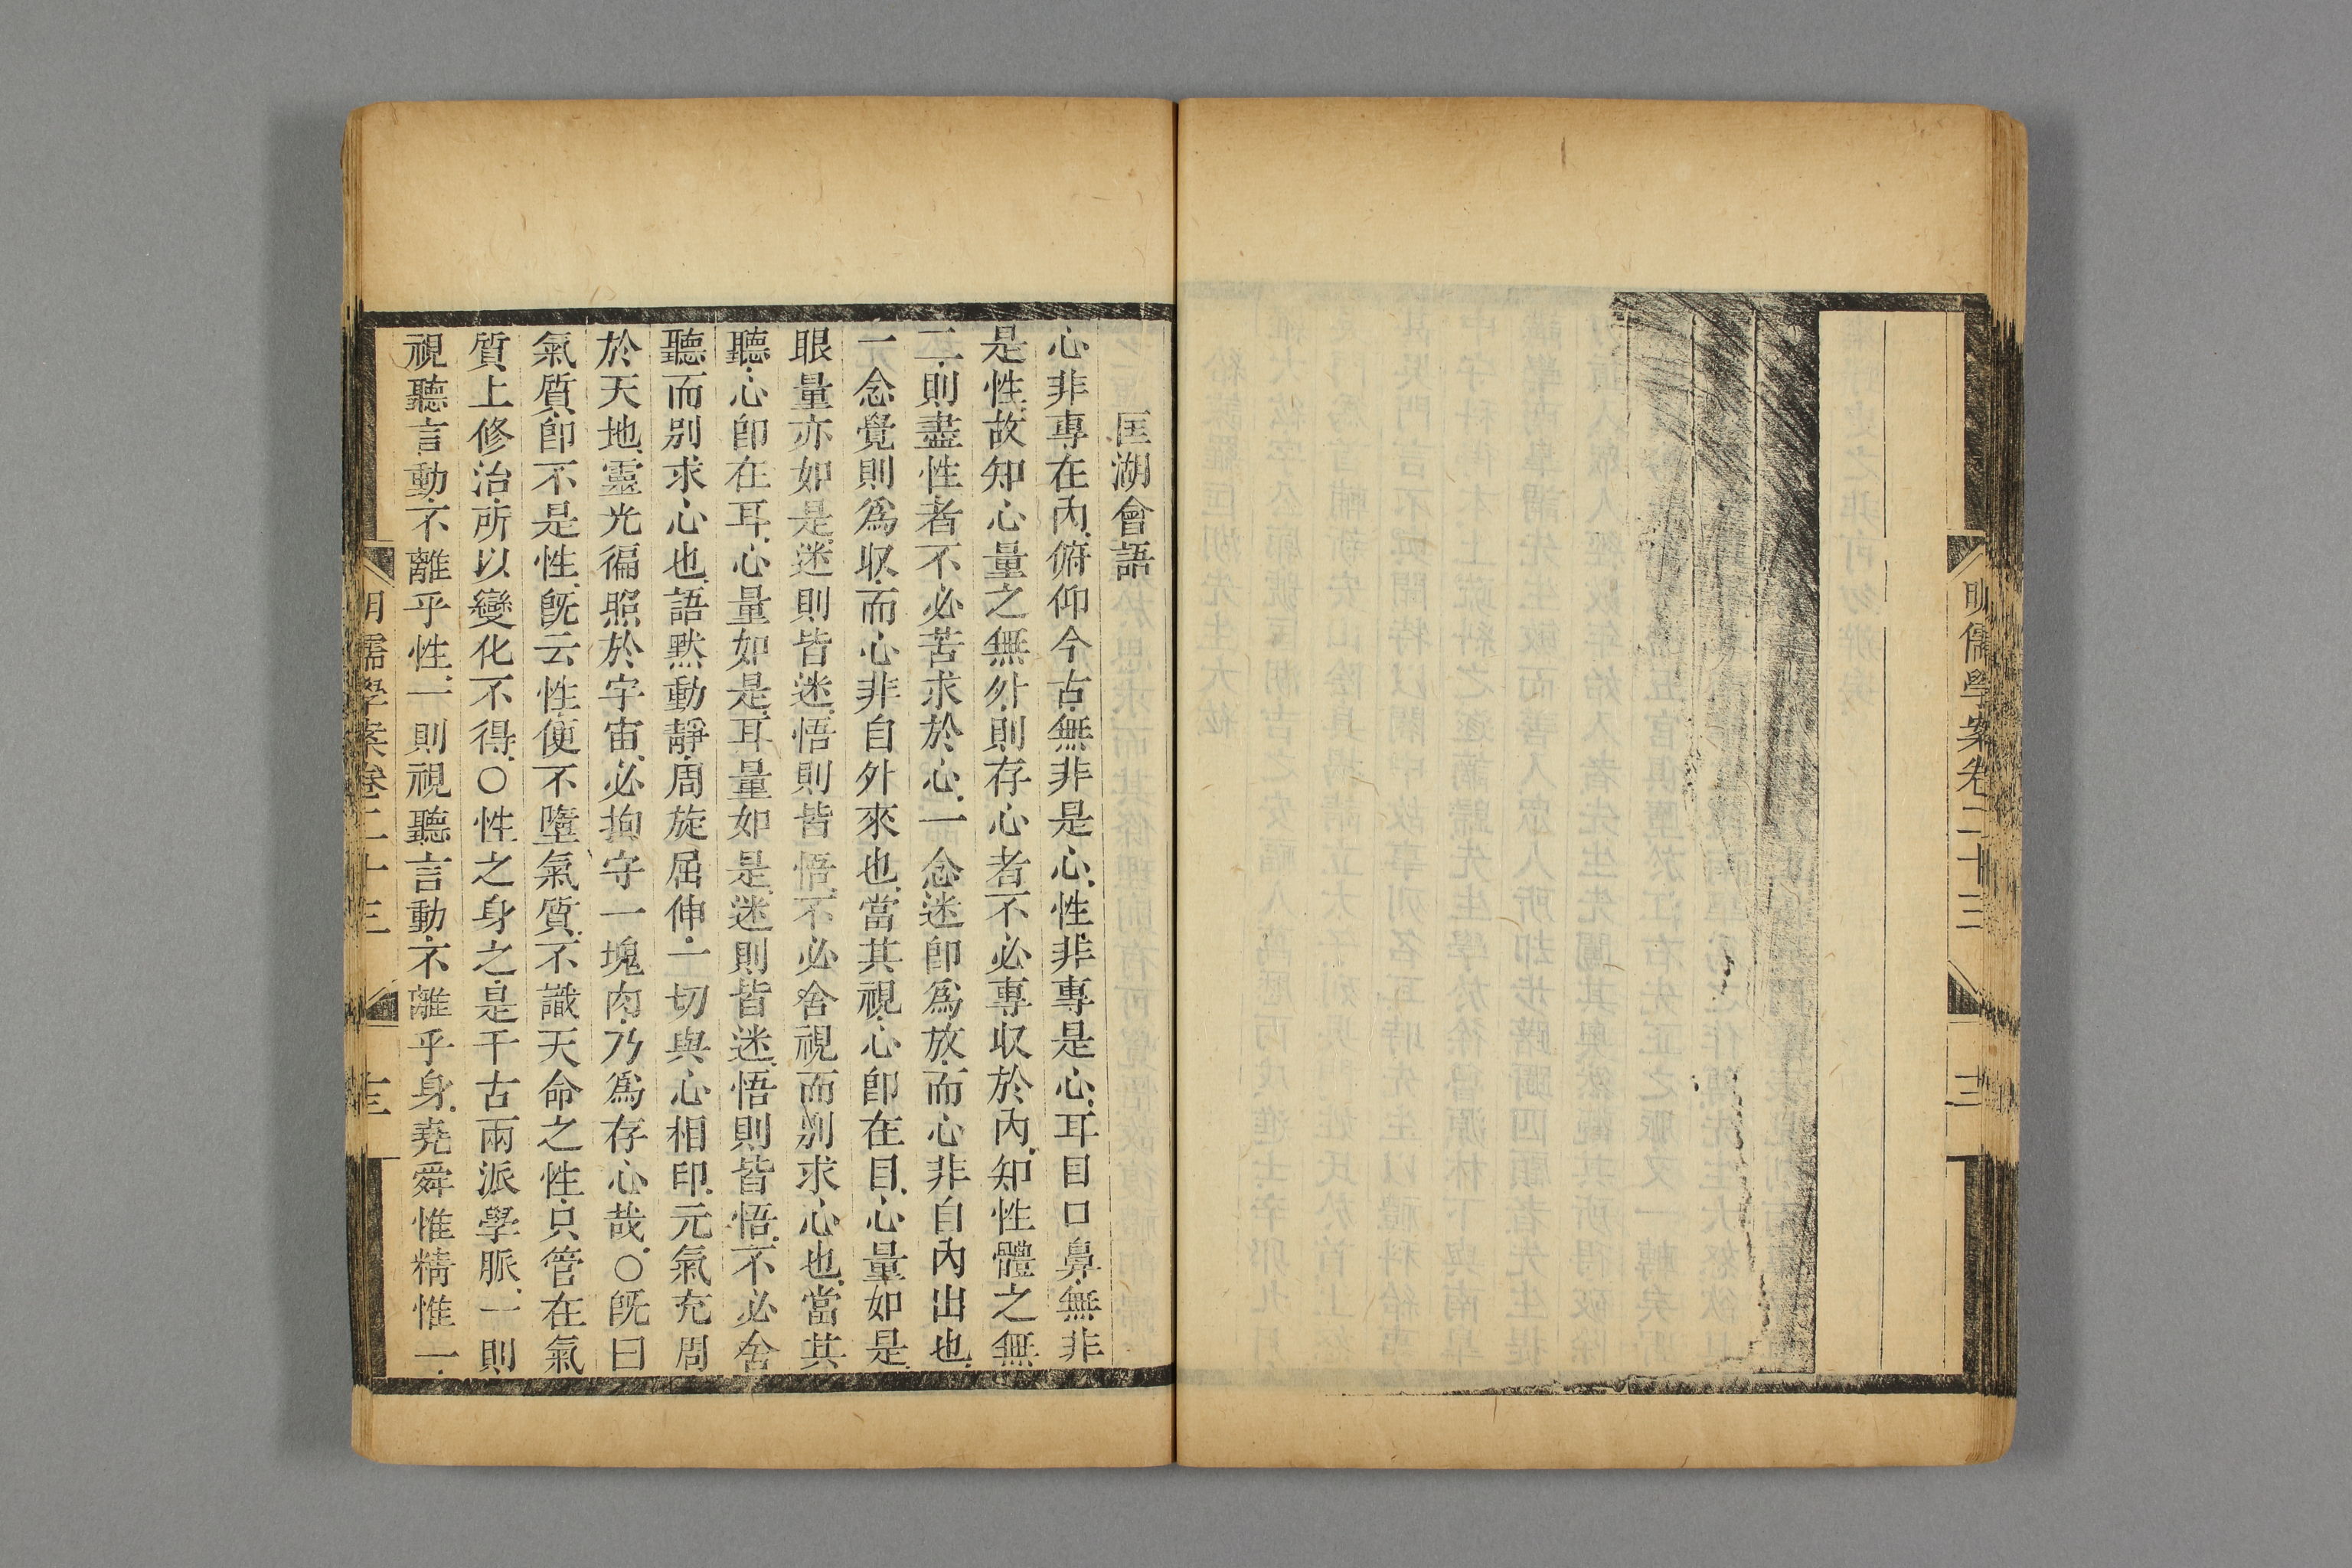 明儒學案卷二十三
匡湖會語
心非專在內俯仰今古無非是心性非專是心耳目口鼻無非
是性故知心量之無外則存心者不必專收於內知性體之無
二則盡性者不必苦求於心一念迷卽爲放而心非自內出也
一念覺則爲收而心非自外來也當其視心卽在目心量如是
眼量亦如是迷則皆迷悟則皆悟不必舍視而別求心也當其
聽心卽在耳心量如是耳量如是迷則皆迷悟則皆悟不必舍
聽而別求心也語默動靜周旋屈伸一切與心相印元氣充周
於天地靈光徧照於宇宙必拘守一塊肉乃爲存心哉○旣曰
氣質卽不是性旣云性便不墮氣質不識天命之性只管在氣
質上修治所以變化不得○性之身之是千古兩派學脈一則
視聽言動不離乎性一則視聽言動不離乎身堯舜惟精惟一
明儒學案卷二十三